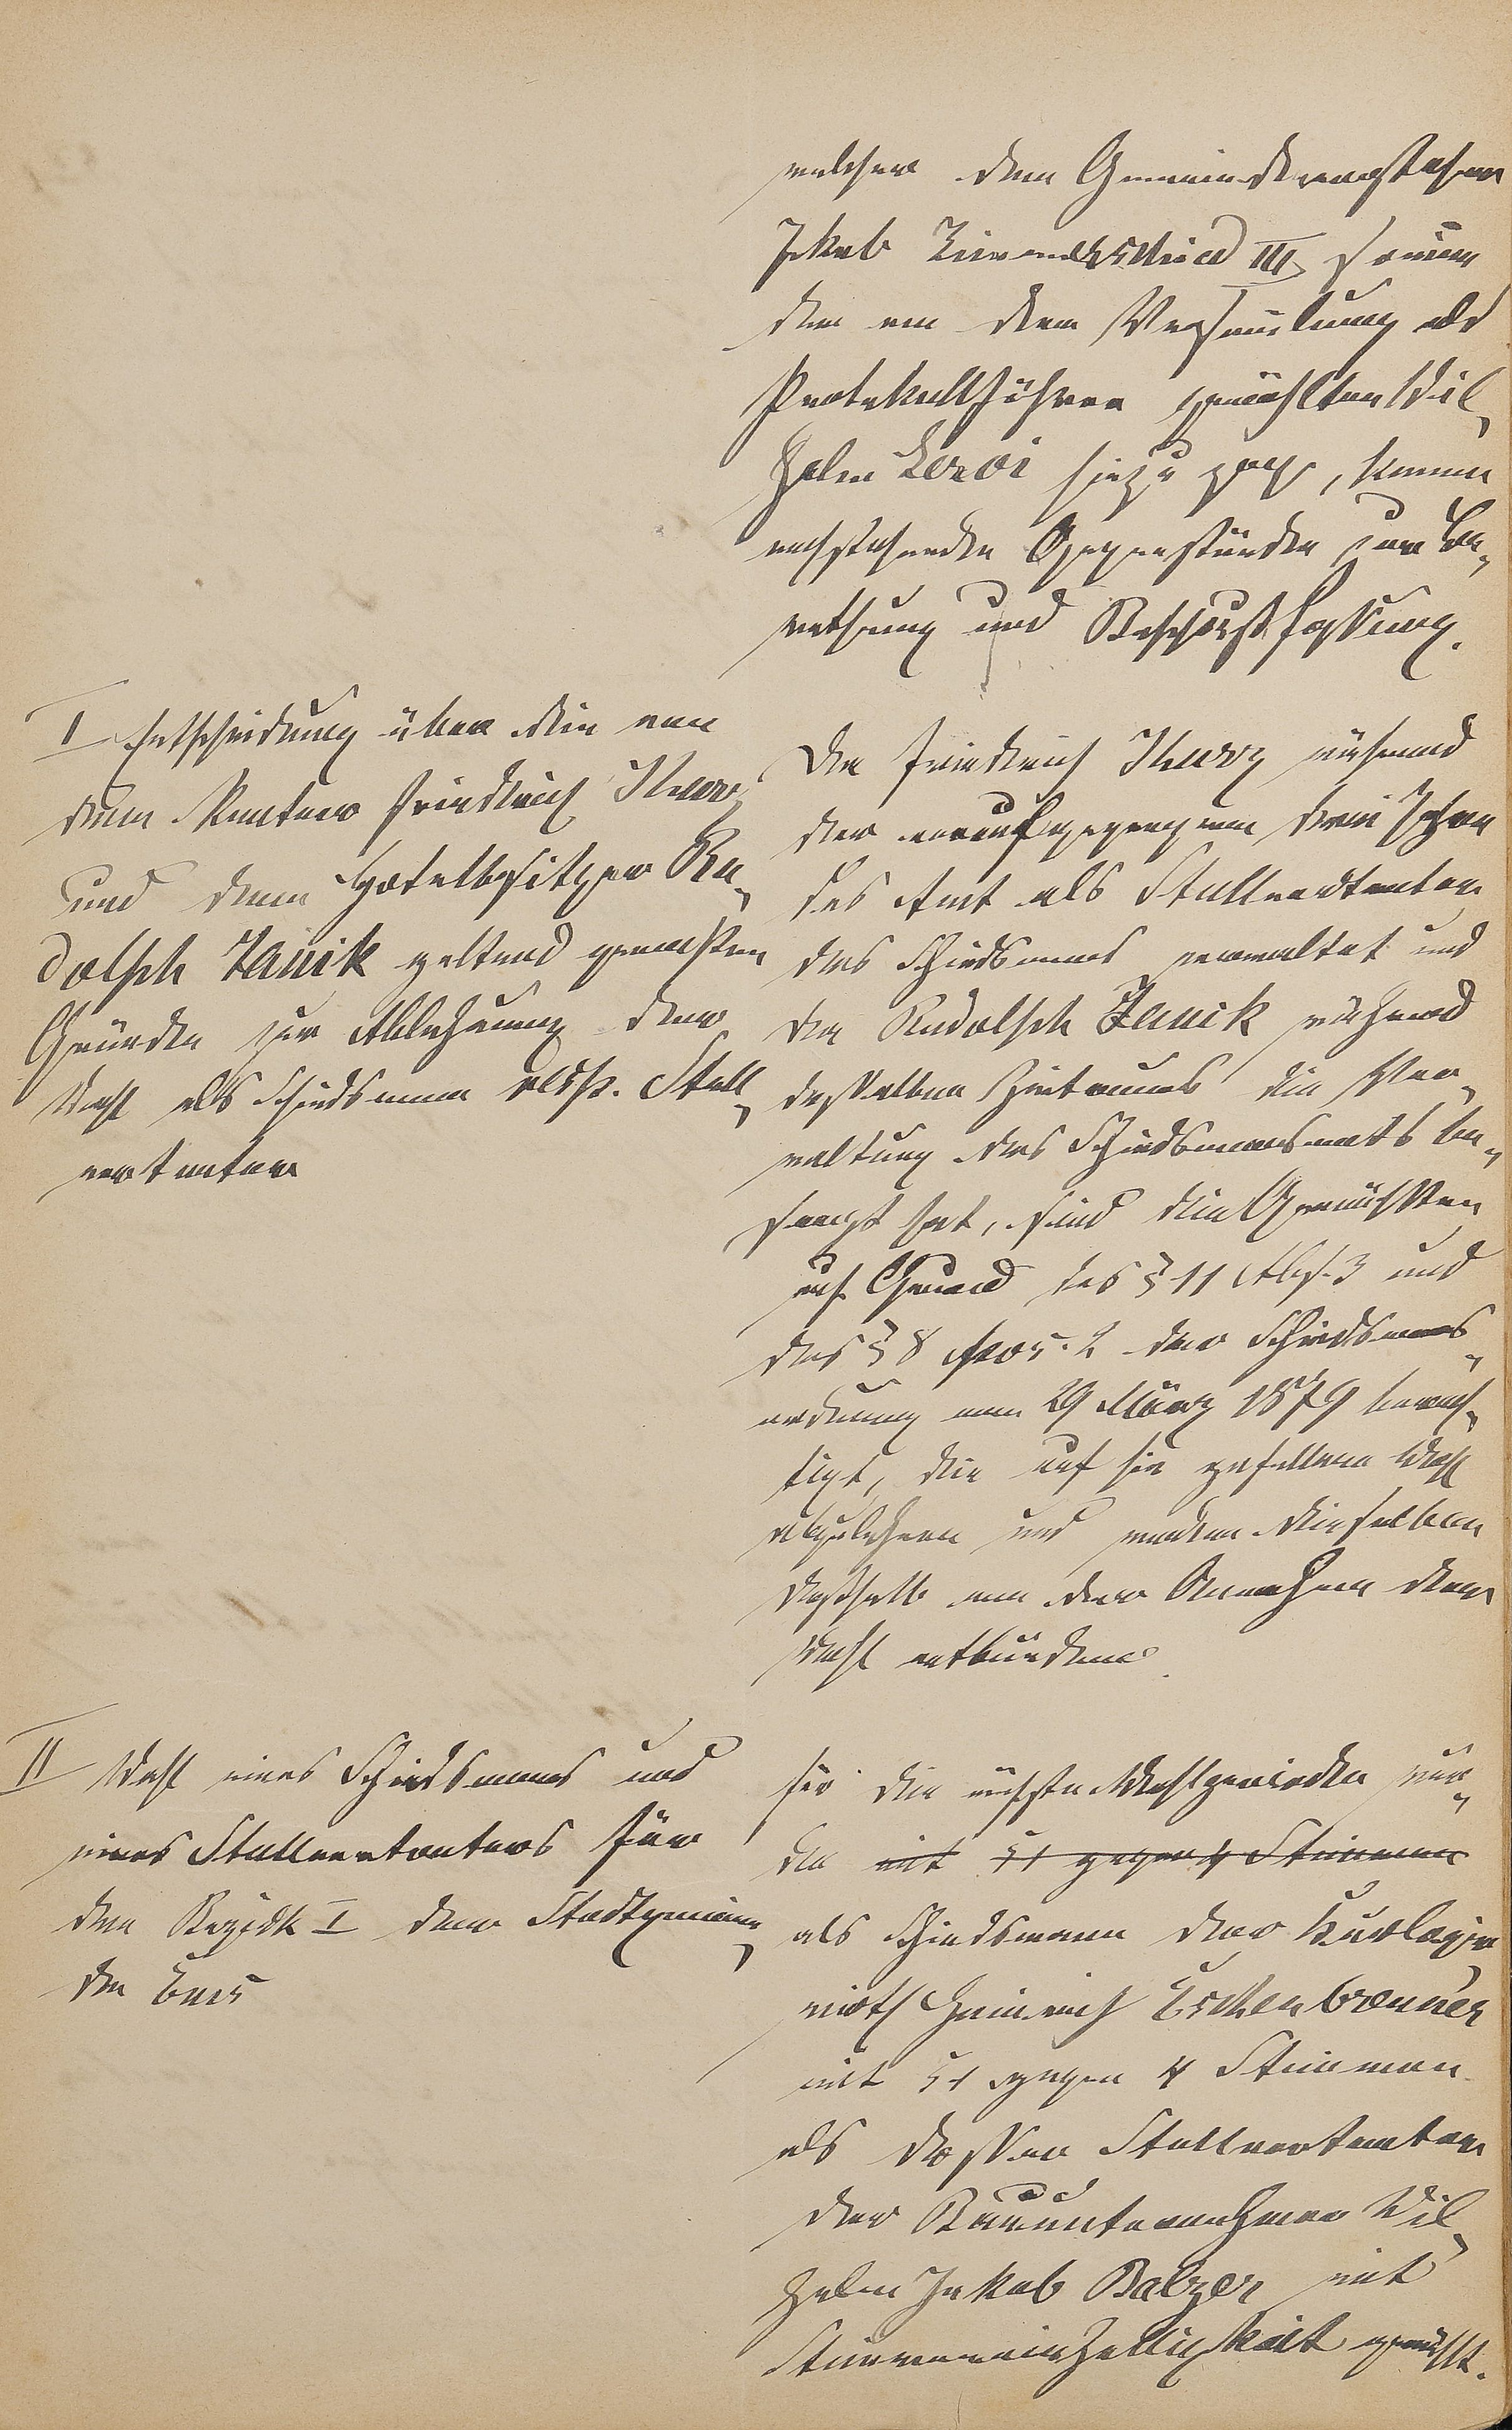 welcher dem Gemeindevorstehen
Jakob Linnenschmied III sowie
den von dem Versammlung als
Protokollführer gewählten Wil-
helm Leroi hinzu zog, kamen
nachstehenden Gegenstände zur Be-
rathung und Beschlußfassung.
I Entscheidung über die von
dem Rentner Friedrich Kurz
und dem Hotelbesitzer Ru-
dolph Janik geltend gemachten
Gründe zur Ablehnung der
Wahl als Schiedsmann resp. Stell-
vertreter
Da Friedrich Kurz während
der voraufgegangenen drei Jahre
das Amt als Stellvertreter
des Schiedsmanns verwaltet und
der Rudolph Janik während
desselben Zeitraums die Ver-
waltung des Schiedsmannsamts be-
sorgt hat, sind die Gewählten
auf Grund des § 11 Abs. 3 und
des § 8 Nro 5. 2 der Schiedsmanns-
ordnung vom 29 März 1879 berech-
tigt, die auf sie gefallene Wahl
abzulehnen und werden dieselben
deßhalb von der Annahme der
Wahl entbunden.
II Wahl eines Schiedsmanns und
eines Stellvertreters für
den Bezirk I der Stadtgemein-
de Ems
Für die nächste Wahlperiode wur-
de mit 51 gegen 4 Stimmen
als Schiedsmann der Kurlogir-
wirth Heinrich Eschenbrenner
mit 51 gegen 4 Stimmen
als dessen Stellvertreter
der Bauunternehmer Wil-
helm Jakob Balzer mit
Stimmeneinhelligkeit gewählt.